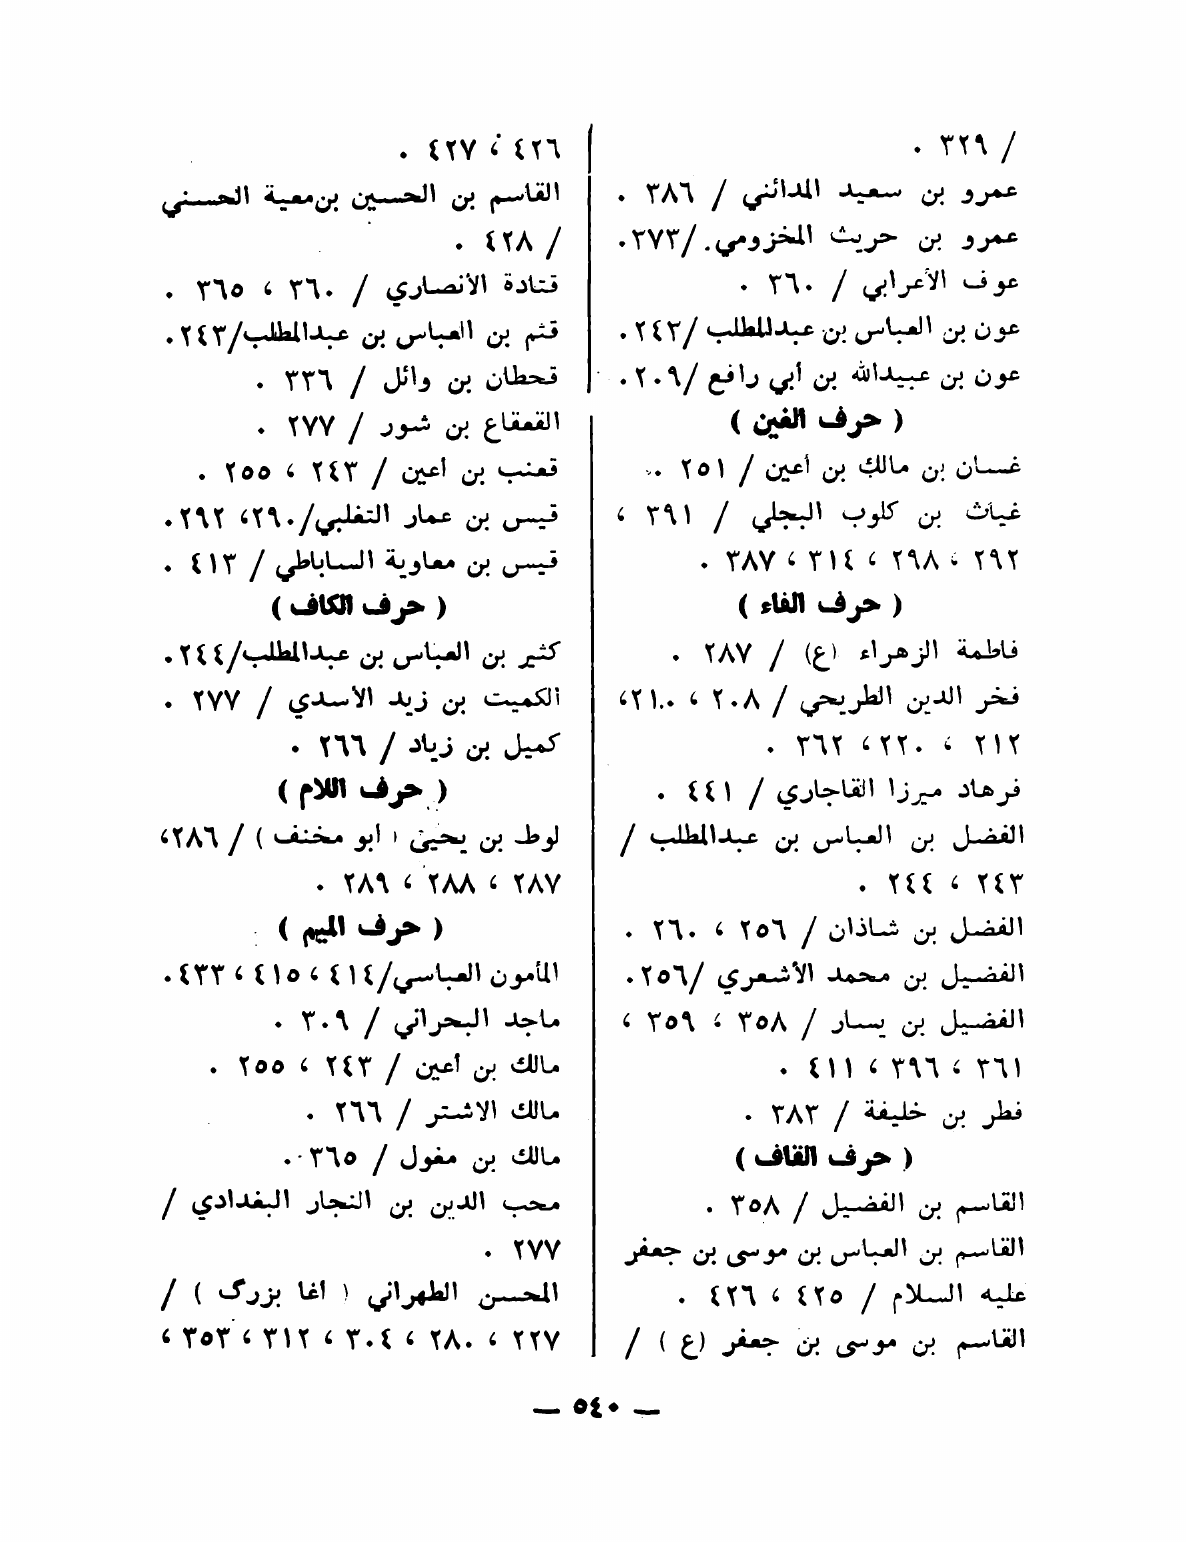 / ٣٢٩ .
عمرو بن سعيد المدائني / ٣٨٦ .
عمرو بن حريث المخزومي /٣٧٣.
عوف الأعرابي / ٣٦٠ .
عون بن العباس بن عبدالمطلب /٢٤٣.
عون بن عبيدالله بن أبي رافع /٢٠٩.
( حرف الغين )
غسان بن مالك بن أعين / ٢٥١ .
غياث بن كلوب البجلي / ٣٩١ ،
٢٩٢ ، ٢٩٨ ، ٣١٤ ، ٣٨٧ .
( حرف الفاء )
فاطمة الزهراء (ع) / ٢٨٧ .
فخر الدين الطريحي / ٢٠٨ ، ٢١٠،
٢١٢ ، ٢٢٠ ، ٣٦٢ .
فرهاد ميرزا القاجاري / ٤٤١ .
الفضل بن العباس بن عبدالمطلب /
٢٤٣ ، ٢٤٤ .
الفضل بن شاذان / ٢٥٦ ، ٢٦٠ .
الفضيل بن محمد الأشعري /٢٥٦.
الفضيل بن يسار / ٣٥٨ ، ٣٥٩ ،
٣٦١ ، ٣٩٦ ، ٤١١ .
فطر بن خليفة / ٣٨٣ .
( حرف القاف )
القاسم بن الفضيل / ٣٥٨ .
القاسم بن العباس بن موسى بن جعفر
عليه السلام / ٤٢٥ ، ٤٢٦ .
القاسم بن موسى بن جعفر (ع) /
٤٢٦ ، ٤٢٧ .
القاسم بن الحسين بن معية الحسني
/ ٤٢٨ .
قتادة الأنصاري / ٣٦٠ ، ٣٦٥ .
قثم بن العباس بن عبدالمطلب/٢٤٣.
قحطان بن وائل / ٣٣٦ .
القعقاع بن شور / ٢٧٧ .
قعنب بن أعين / ٢٤٣ ، ٢٥٥ .
قيس بن عمار التغلبي/٢٩٠، ٢٩٢.
قيس بن معاوية الساباطي / ٤١٣ .
( حرف الكاف )
كثير بن العباس بن عبدالمطلب/٢٤٤.
الكميت بن زيد الأسدي / ٢٧٧ .
كميل بن زياد / ٢٦٦ .
( حرف اللام )
لوط بن يحيى ( أبو مخنف ) / ٢٨٦،
٢٨٧ ، ٢٨٨ ، ٢٨٩ .
( حرف الميم )
المأمون العباسي/٤١٤ ، ٤١٥ ، ٤٣٣.
ماجد البحراني / ٣٠٩ .
مالك بن أعين / ٢٤٣ ، ٢٥٥ .
مالك الاشتر / ٢٦٦ .
مالك بن مغول / ٣٦٥ .
محب الدين بن النجار البغدادي /
٢٧٧ .
المحسن الطهراني ( أغا بزرگ ) /
٢٢٧ ، ٢٨٠ ، ٣٠٤ ، ٣١٢ ، ٣٥٣ ،
— ٥٤٠ —